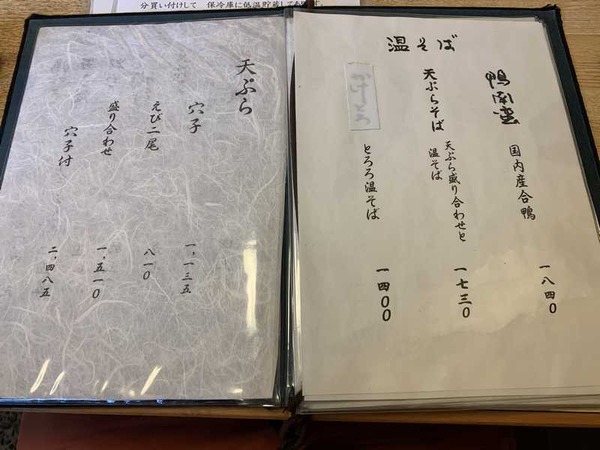 分買い付けして 保冷庫に低温貯蔵してあります。
温そば
鴨南蛮
国内産合鴨
一八四〇
天ぷらそば
天ぷら盛り合わせと
温そば
一七三〇
かけとろ
とろろ温そば
一四〇〇
天ぷら
穴子
一、一三五
えび二尾
八一〇
盛り合わせ
一、五一〇
穴子付
二、四八五